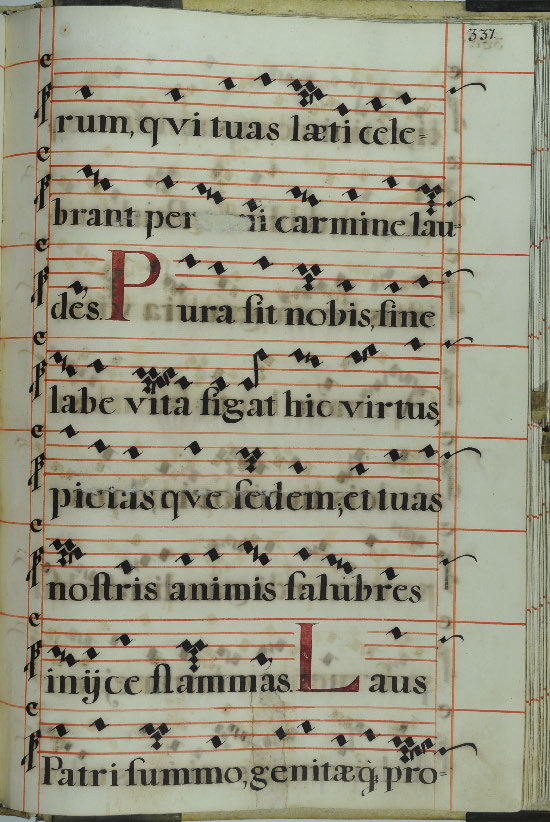 337
rum, qvi tuas læti cele-
brant per ni carmine lau-
des. Pura sit nobis, sine
labe vita figat hic virtus,
pietas qve sedem, et tuas
nostris animis salubres
inijce flammas. Laus
Patri summo, genitæq; pro-